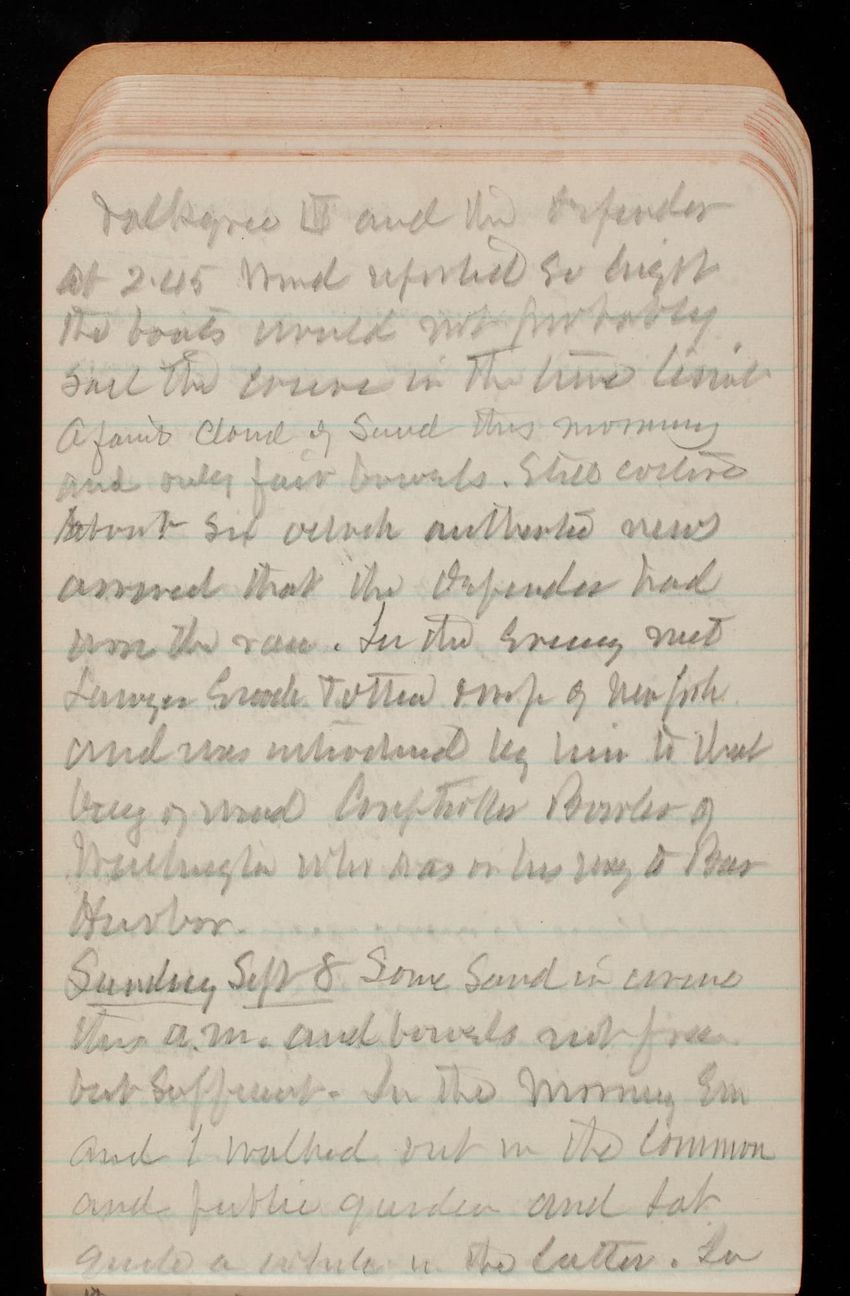 Valkyrie III and the Defender
at 2.45 Wind reported so light
the boats would not probably
sail the course in the time limit
A faint cloud of Sand this morning
and only fair bowels. Still costive
About six oclock authentic news
arrived that the Defender had
won the race. In the Evening met
Lawyer Enoch Totten of
and was introduced by him to that
of Comptroller Bowler of
Washington who was on his way to Bar
Harbor.
Sunday Sept 8 Some Sand in urine
this a.m. and bowels not free
but Sufficient. In the Morning Em
and I walked out in the Common
and public garden and sat
quite a while in the latter. In